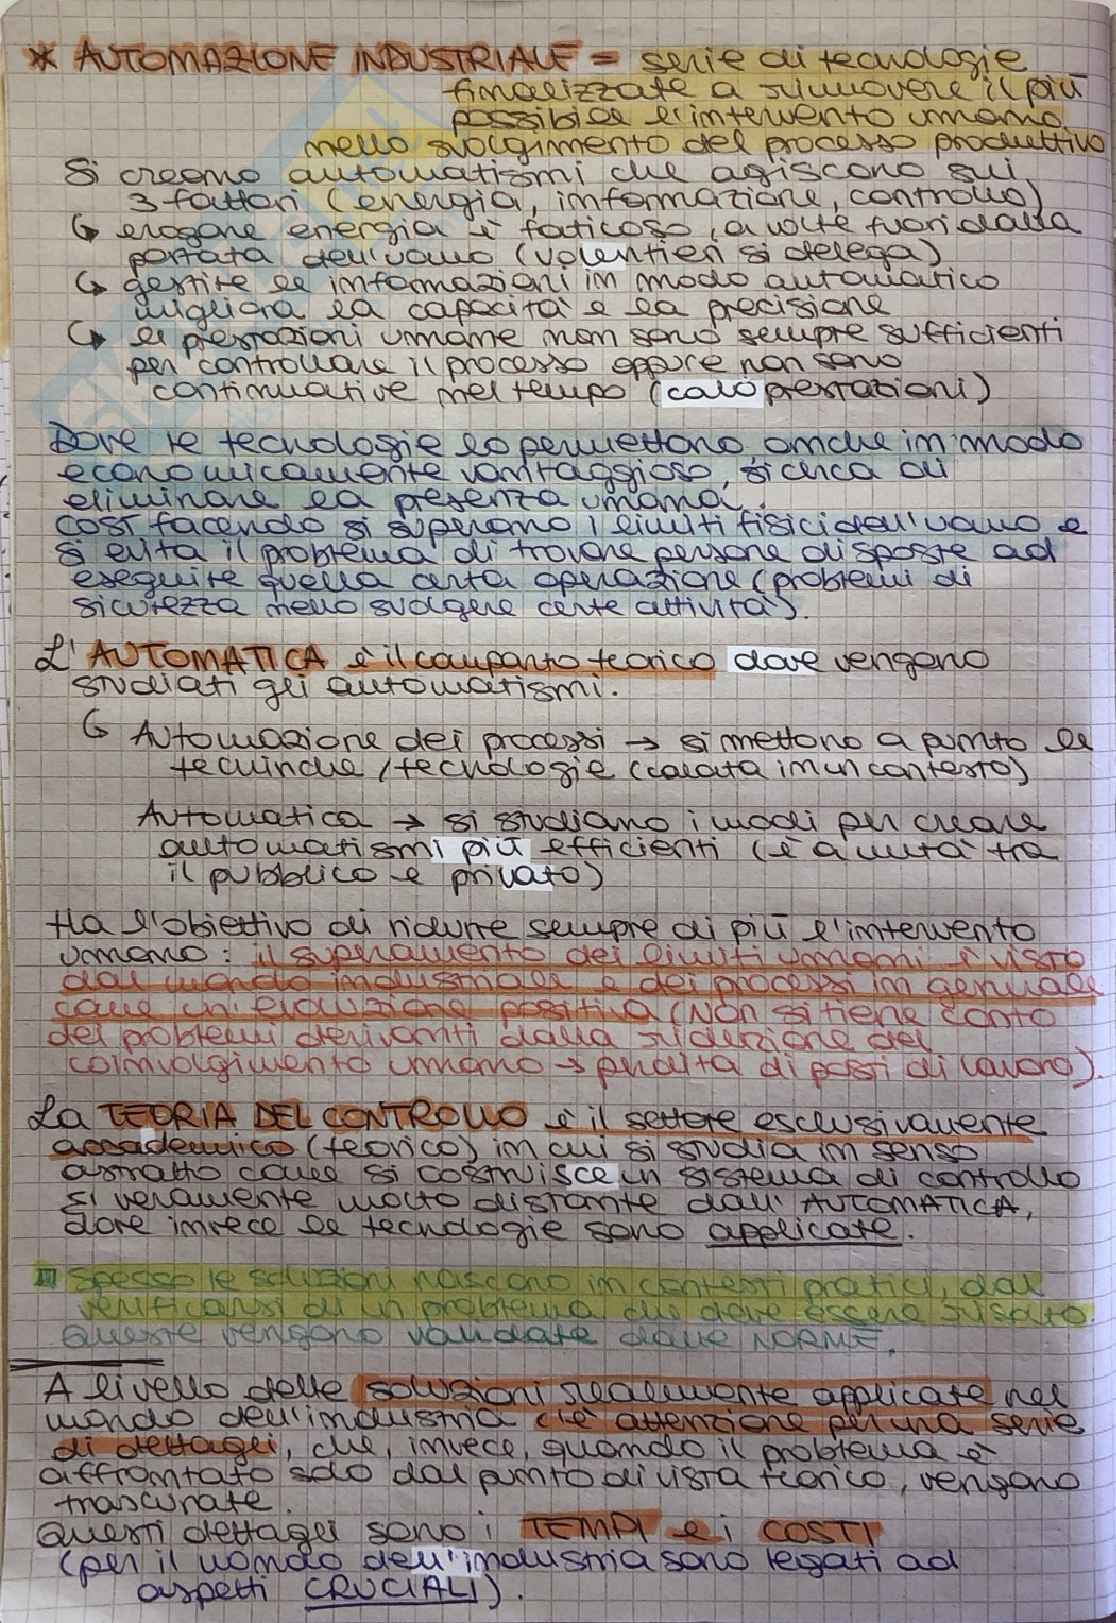 * AUTOMAZIONE INDUSTRIALE = serie di tecnologie
finalizzate a rimuovere il più
possibile l'intervento umano
nello svolgimento del processo produttivo
Si creano automatismi che agiscono sui
3 fattori (energia, informazione, controllo)
↳ erogare energia è faticoso, a volte fuori dalla
portata dell'uomo (volentieri si delega)
↳ gestire le informazioni in modo automatico
migliora la capacità e la precisione
↳ le prestazioni umane non sono sempre sufficienti
per controllare il processo oppure non sono
continuative nel tempo (calo prestazioni)
Dove le tecnologie lo permettono anche in modo
economicamente vantaggioso, si cerca di
eliminare la presenza umana.
Così facendo si superano i limiti fisici dell'uomo e
si evita il problema di trovare persone disposte ad
eseguire quella certa operazione (problemi di
sicurezza nello svolgere certe attività).
L'AUTOMATICA è il comparto teorico dove vengono
studiati gli automatismi.
↳ Automazione dei processi → si mettono a punto le
tecniche / tecnologie (calata in un contesto)
Automatica → si studiano i modi per creare
automatismi più efficienti (è a metà tra
il pubblico e privato)
Ha l'obiettivo di ridurre sempre di più l'intervento
umano: il superamento dei limiti umani è visto
dal mondo industriale e dei processi in generale
come un'evoluzione positiva (Non si tiene conto
dei problemi derivanti dalla riduzione del
coinvolgimento umano → perdita di posti di lavoro).
La TEORIA DEL CONTROLLO è il settore esclusivamente
accademico (teorico) in cui si studia in senso
astratto come si costruisce un sistema di controllo
si veramente molto distante dall'AUTOMATICA,
dove invece le tecnologie sono applicate.
Spesso le soluzioni nascono in contesti pratici, dal
verificarsi di un problema che deve essere risolto.
Queste vengono validate dalle NORME.
A livello delle soluzioni realmente applicate nel
mondo dell'industria c'è attenzione per una serie
di dettagli, che, invece, quando il problema è
affrontato solo dal punto di vista teorico, vengono
trascurate.
Questi dettagli sono i TEMPI e i COSTI
(per il mondo dell'industria sono legati ad
aspetti CRUCIALI).